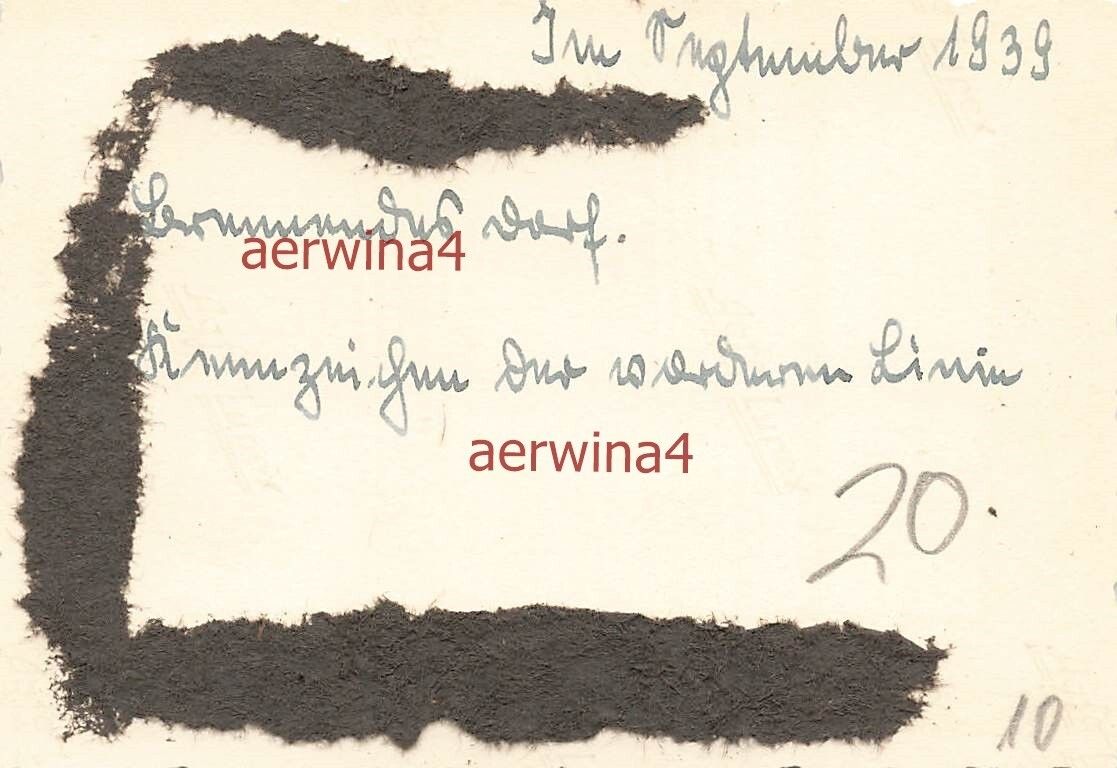 Im September 1939
Brennendes Dorf.
aerwina4
Kennzeichen der vorderen Linie
aerwina4
20.
10